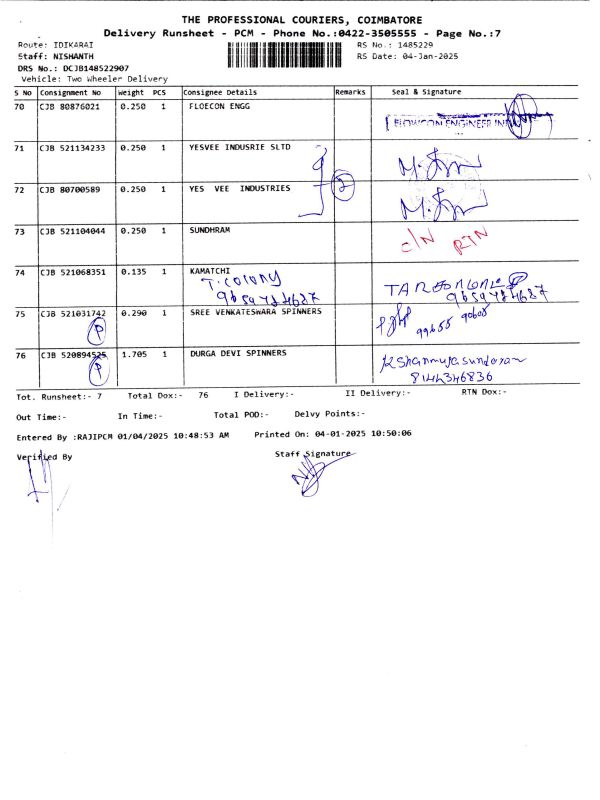 THE PROFESSIONAL COURIERS, COIMBATORE
Delivery Runsheet - PCM - Phone No.:0422-3505555 - Page No.:7
Route: IDIKARAI RS No.: 1485229
Staff: NISHANTH RS Date: 04-Jan-2025
DRS No.: DCJB148522907
Vehicle: Two Wheeler Delivery
S No Consignment No Weight PCS Consignee Details Remarks Seal & Signature
70 CJB 80876021 0.250 1 FLOECON ENGG
FLOWCON ENGINEER IND
71 CJB 521134233 0.250 1 YESVEE INDUSRIE SLTD
2
72 CJB 80700589 0.250 1 YES VEE INDUSTRIES
73 CJB 521104044 0.250 1 SUNDHRAM C/N RTN
74 CJB 521068351 0.135 1 KAMATCHI
T. COLONY
75 CJB 521031742 0.290 1 SREE VENKATESWARA SPINNERS
P 99655 90605
76 CJB 520894525 1.705 1 DURGA DEVI SPINNERS
P K Shanmugasundaram
8144346836
Tot. Runsheet:- 7 Total Dox:- 76 I Delivery:- II Delivery:- RTN Dox:-
Out Time:- In Time:- Total POD:- Delvy Points:-
Entered By :RAJIPCM 01/04/2025 10:48:53 AM Printed On: 04-01-2025 10:50:06
Verified By Staff Signature